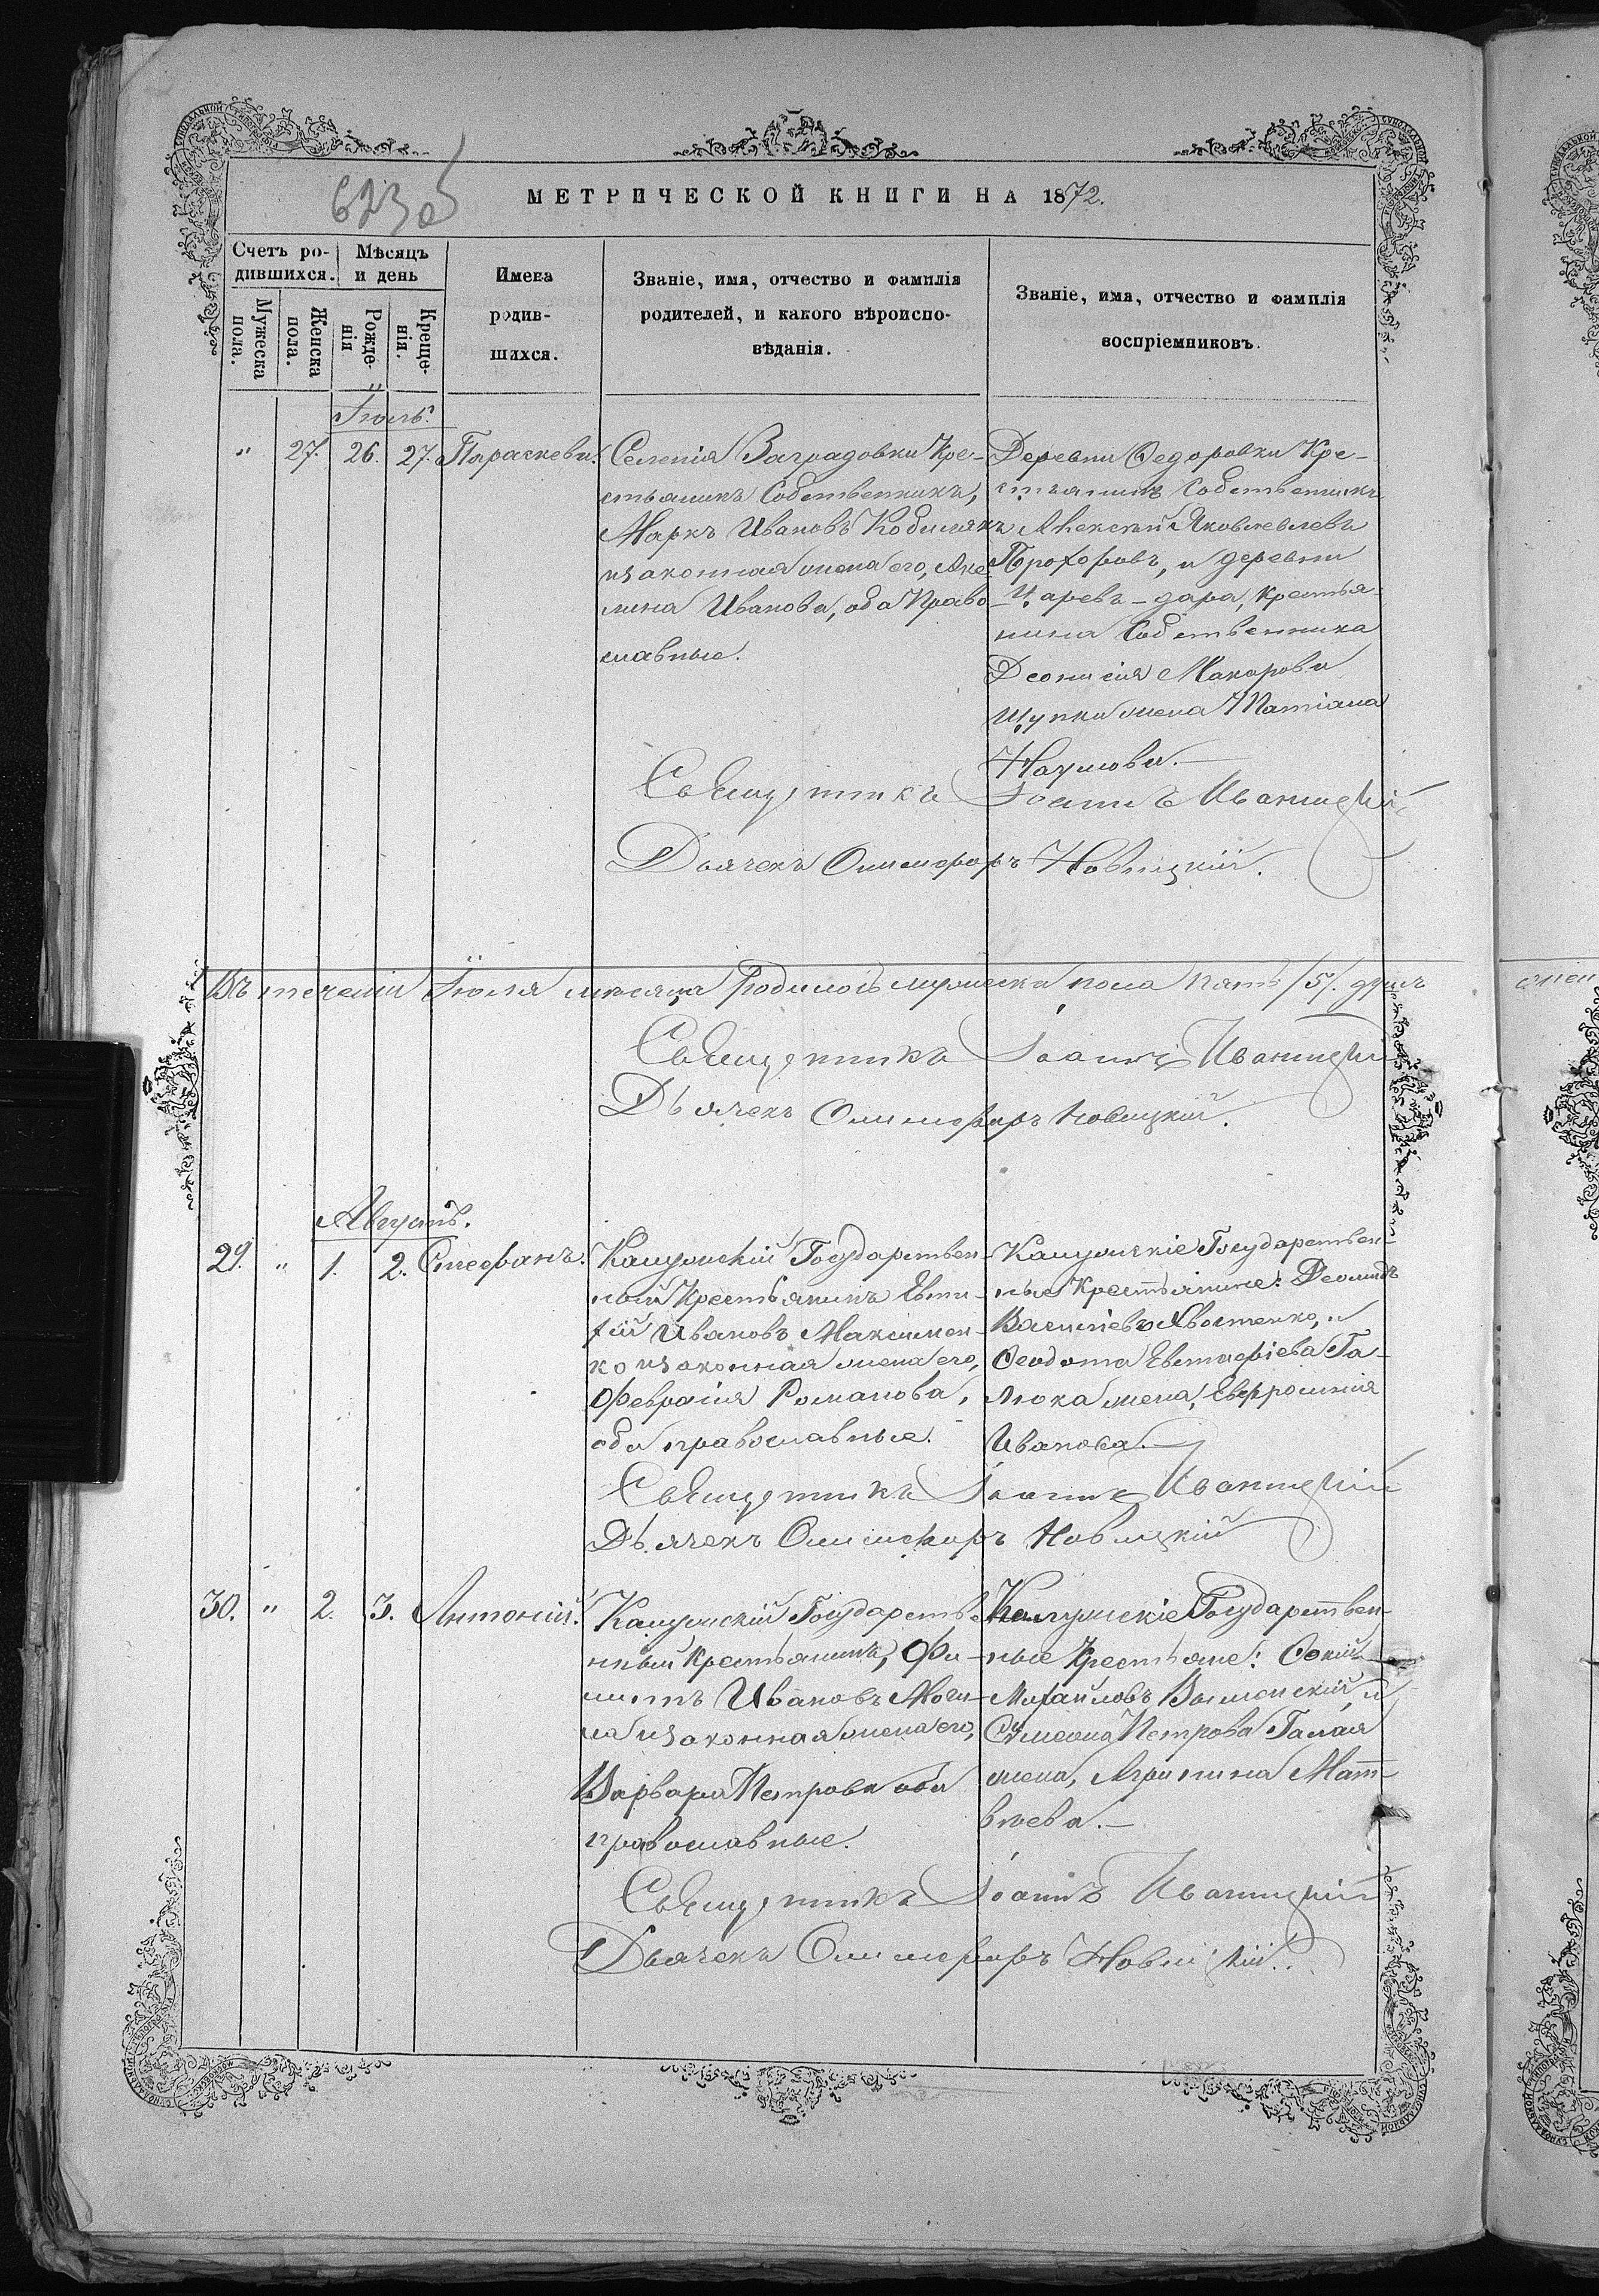 623об
МЕТРИЧЕСКОЙ КНИГИ НА 1872.
Счетъ ро-
дившихся.
Мѣсяцъ
и день
Мужеска
пола.
Женска
пола.
Рожде-
нія
Креще-
нія.
Имена
родив-
шихся.
Званіе, имя, отчество и фамилія
родителей, и какого вѣроиспо-
вѣданія.
Званіе, имя, отчество и фамилія
воспріемниковъ.
Іюль.
" 27. 26. 27. Параскева.
Селенія Заградовки Кре-
стьянинъ Собственникъ,
Маркъ Ивановъ Кобилякъ
и законная жена его, Аке-
лина Иванова, оба Право-
славные.
Деревни Ѳедоровки Кре-
стьянинъ Собственникъ
Алексѣй Яковлевлевъ
Прохоровъ, и деревни
Царевъ-дара, крестья-
нина Собственника
Деонисія Макарова
Щупки жена Татіана
Наумова.
Священникъ Іоаннъ Иваницкій
Дьячекъ Онисифоръ Новицкій.
Въ теченіи Іюля мѣсяца Родилось мужеска пола пять /5/. душъ
Священникъ Іоаннъ Иваницкій
Дьячекъ Онисифоръ Новицкій.
Августъ.
29. " 1. 2. Стефанъ.
Калужскій Государствен-
ный Крестьянинъ Евти-
хій Ивановъ Максимен-
ко и законная жена его,
Феврасія Романова,
оба православные.
Калужскіе Государствен-
ные Крестьяне: Деомидъ
Васильевъ Хвостенко, и
Ѳеодота Евстафіева Га-
люка жена, Евфросинія
Иванова.
Священникъ Іоаннъ Иваницкій
Дьячекъ Онисифоръ Новицкій
30. " 2. 3. Антоній.
Калужскій Государстве
нный Крестьянинъ, Фи-
липъ Ивановъ Моги-
ла и законная жена его,
Варвара Петрова оба
православные.
Калужскіе Государствен-
ные Крестьяне:
Михаиловъ и
Симеона Петрова Галая
жена, Агрипина Мат-
вѣева.
Священникъ Іоаннъ Иваницкій
Дьячекъ Онисифоръ Новицкій.